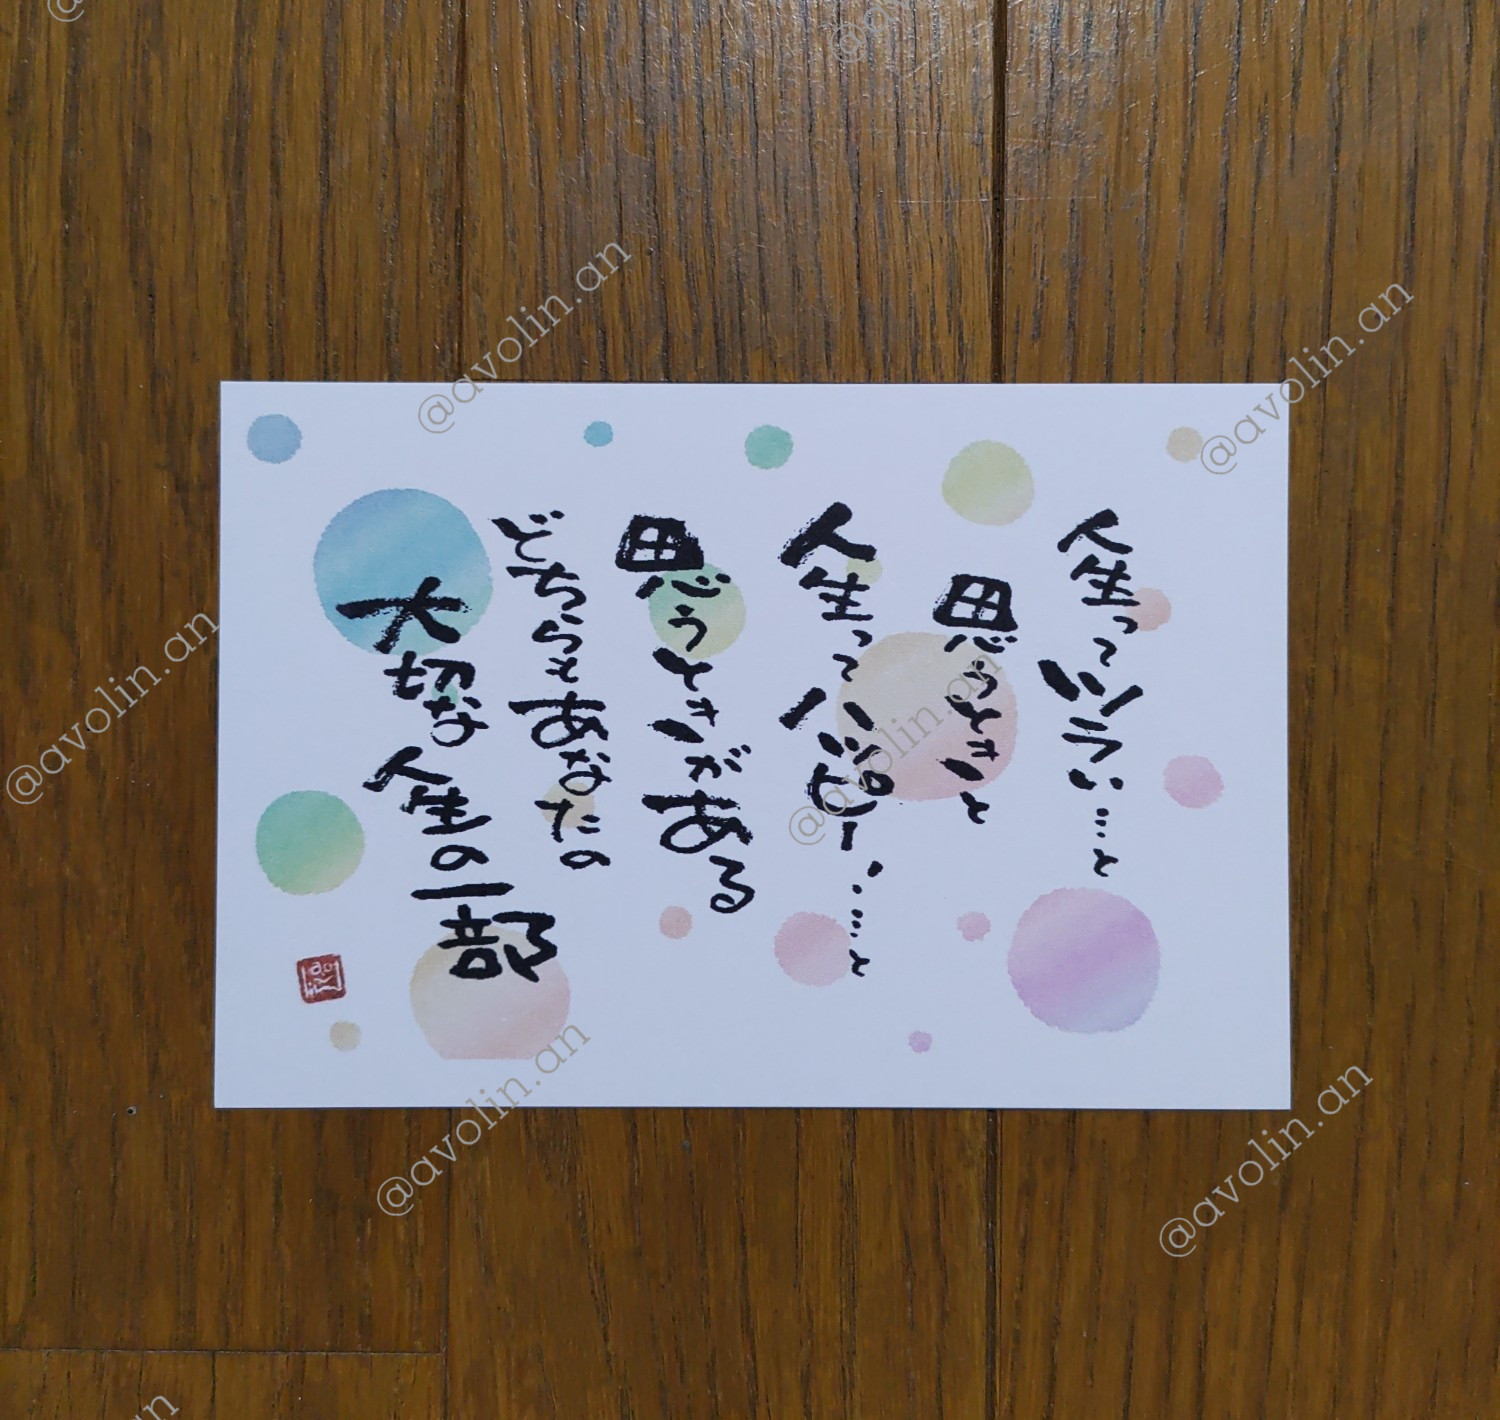 人生ってツラい…と
思うときと
人生ってハッピー！…と
思うときがある
どちらもあなたの
大切な人生の一部
@avolin.an
@avolin.an
@avolin.an
@avolin.an
@avolin.an
@avolin.an